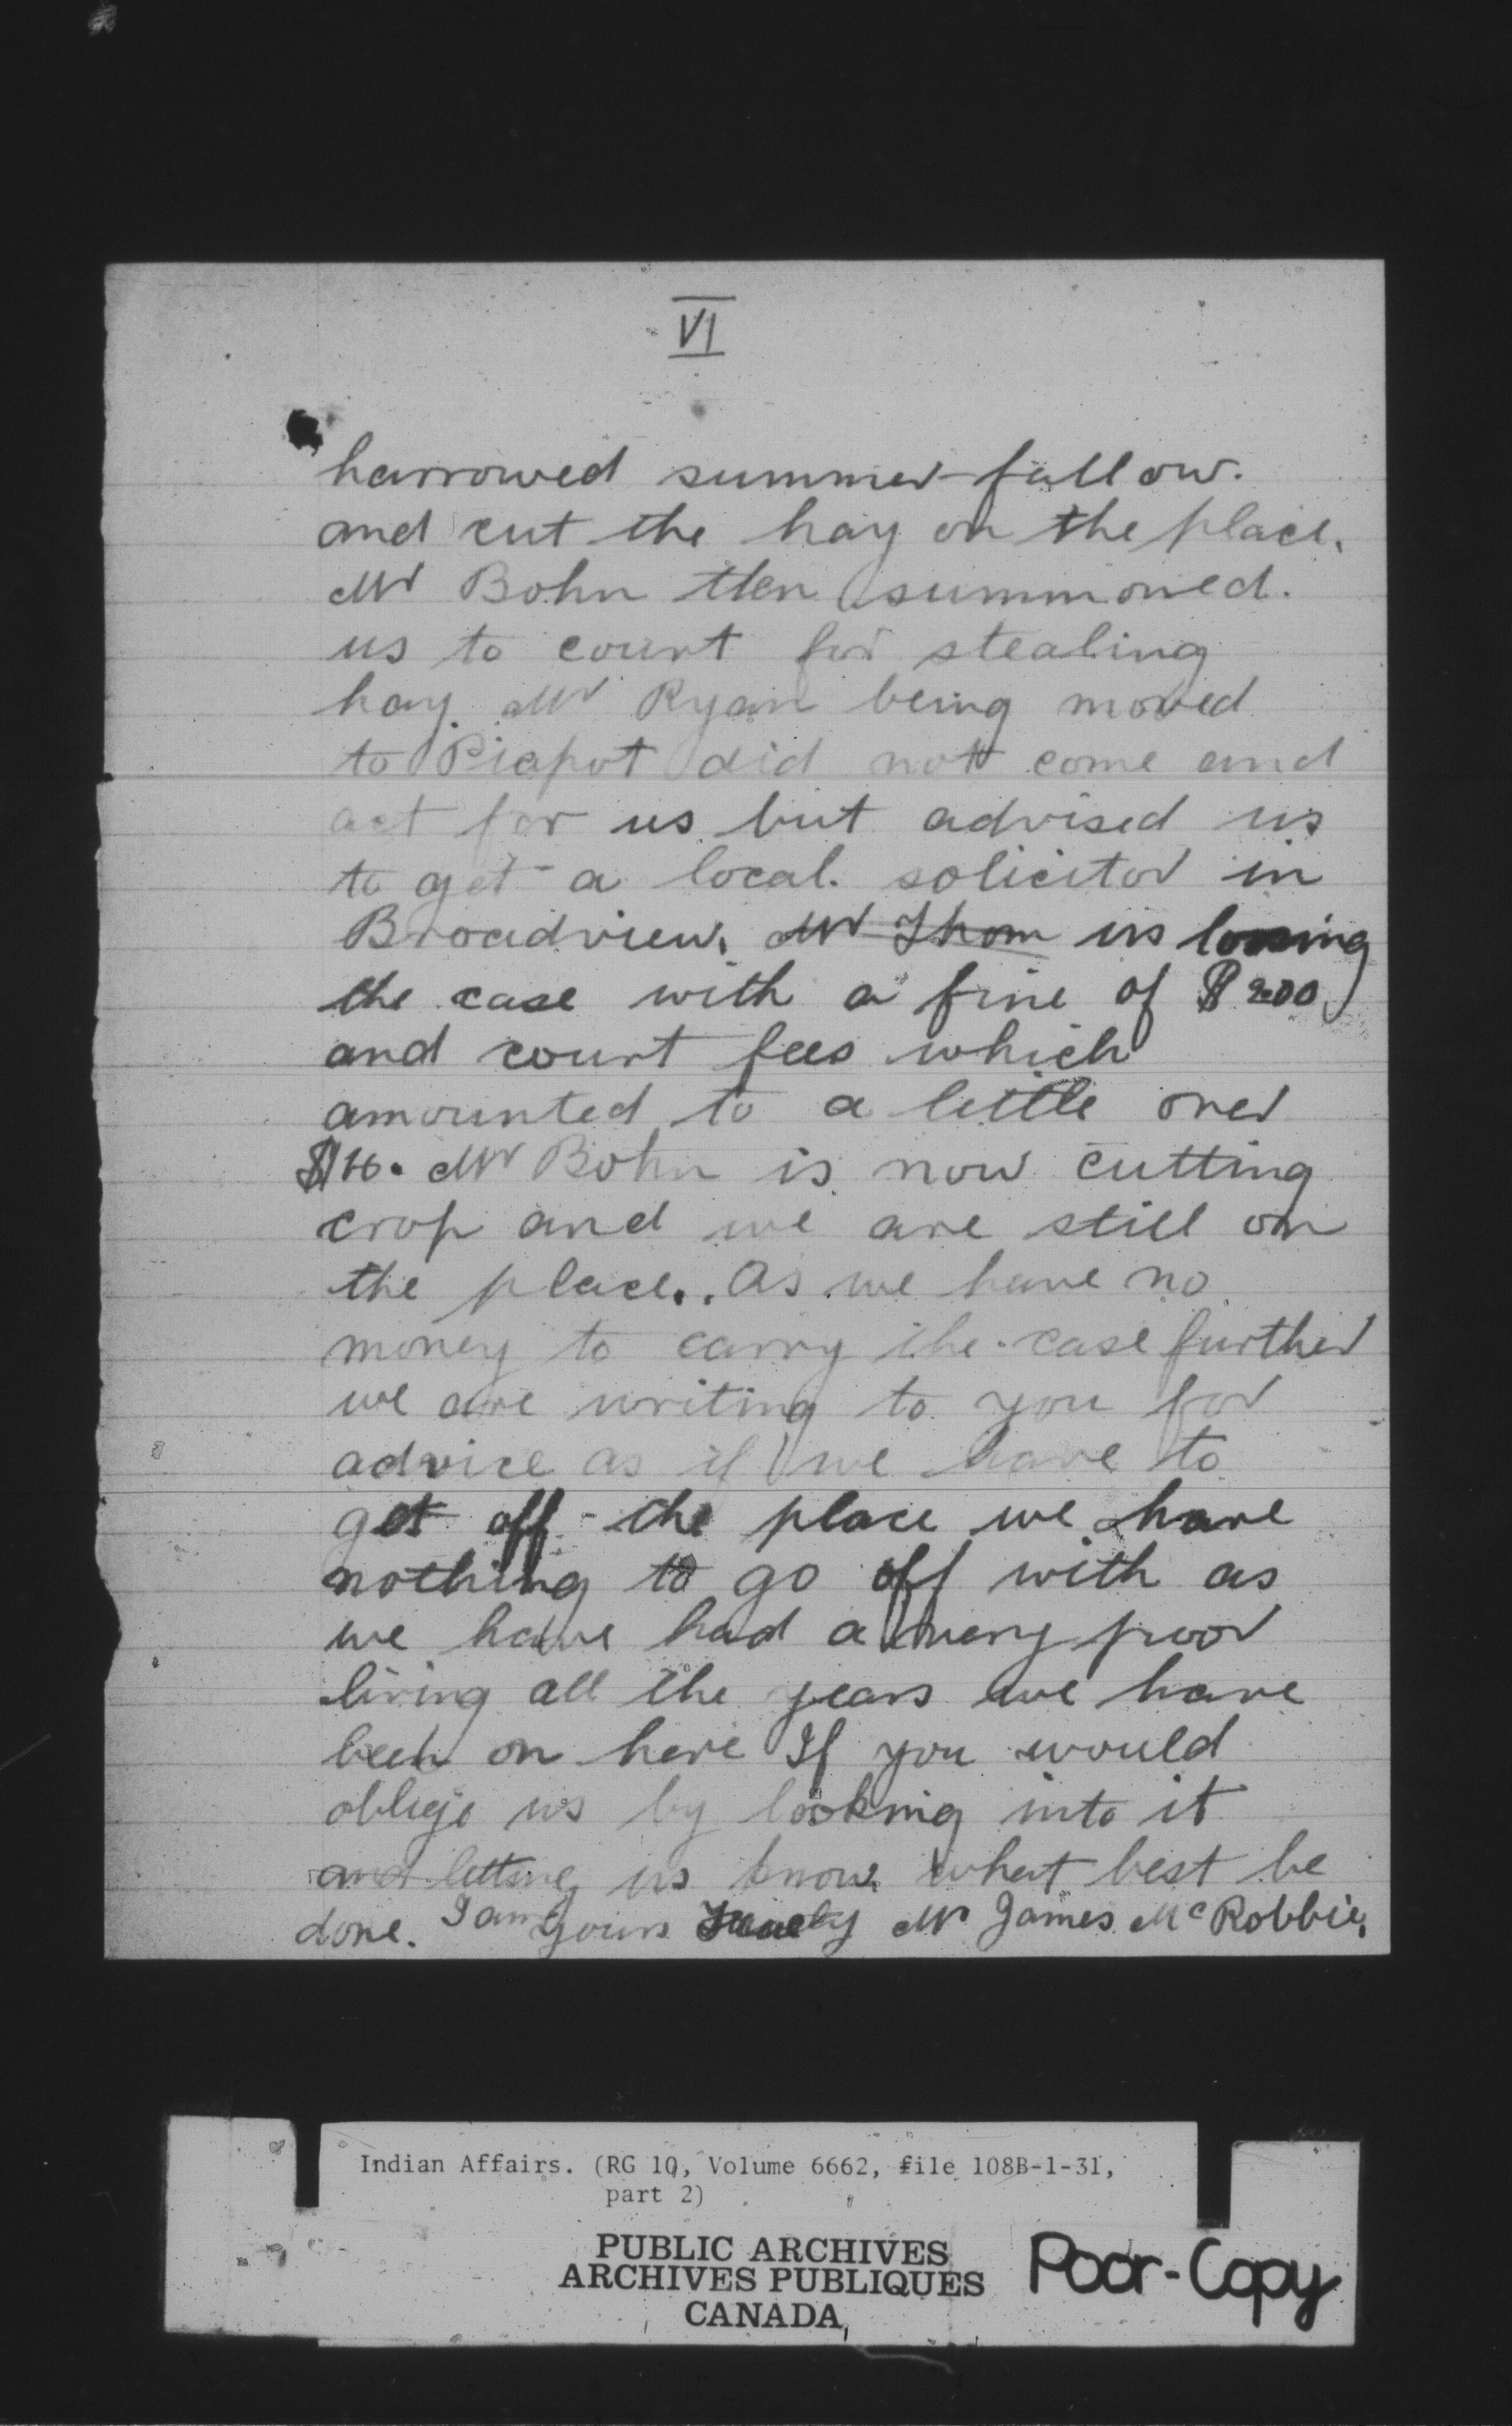 VI
harrowed summer-fallow.
and cut the hay on the place.
Mr Bohn then summoned.
us to court for stealing
hay. Mr Ryan being moved
to Piapot did not come and
act for us but advised us
to get a local. solicitor in
Broadview. Mr Thom us loosing
the case with a fine of $200
and court fees which
amounted to a little over
Mr Bohn is now cutting
crop and we are still on
the place.. As we have no
money to carry the case further
we are writing to you for
advice as if we have to
get off the place we have
nothing to go off with as
we have had a very poor
living all the years we have
been on here If you would
oblige us by looking into it
and letting us know what best be
done. I am yours Mr James McRobbie.
Indian Affairs. (RG 10, Volume 6662, file 108B-1-31,
part 2)
PUBLIC ARCHIVES
ARCHIVES PUBLIQUES
CANADA
Poor-Copy